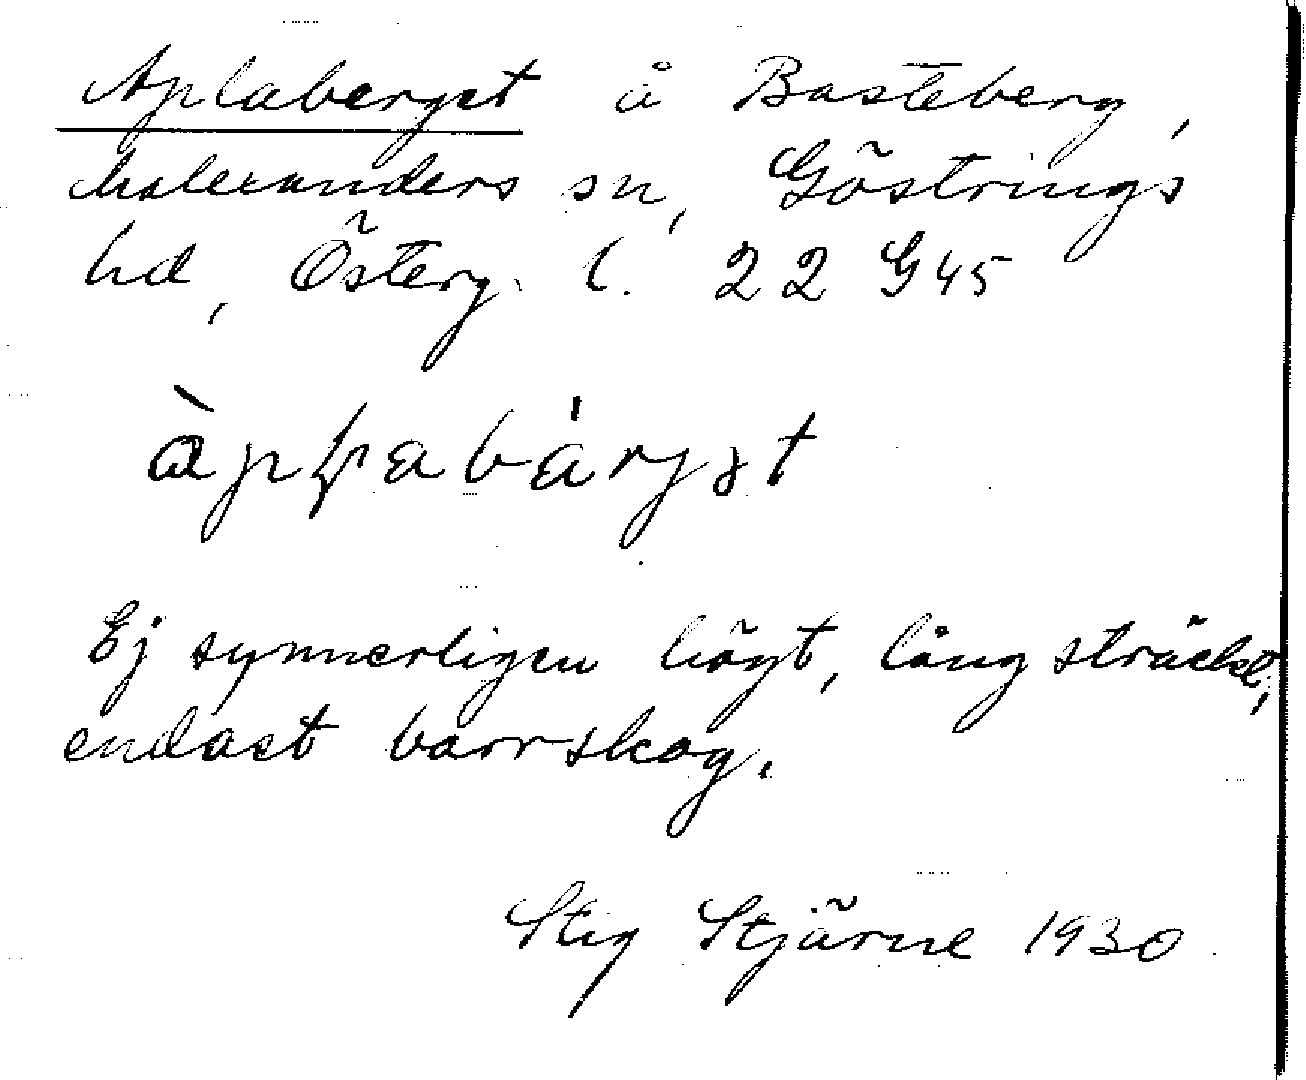 Aplaberget å Basteberg,
Malexanders sn, Göstrings
hd, Österg. l. 22 G 45
Ej synnerligen högt, långsträckt,
endast barrskog.
Stig Stjärne 1930